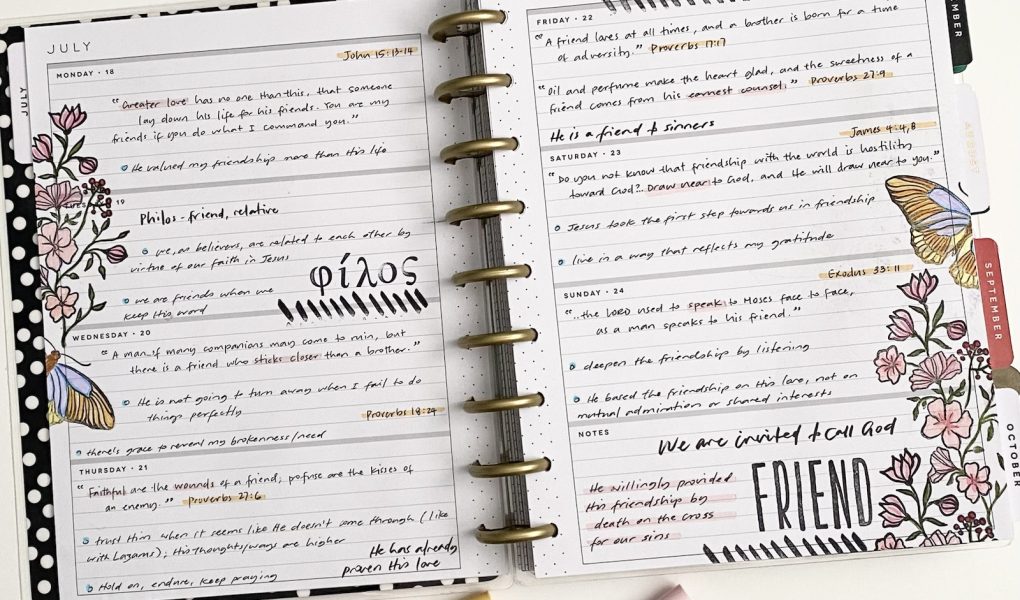 JULY
JULY
John 15:13-14
MONDAY · 18
"Greater love has no one than this, that someone
lay down his life for his friends. You are my
friends if you do what I command you."
He valued my friendship more than His life
19
Philos - friend, relative
we, as believers, are related to each other by
virtue of our faith in Jesus
φίλος
we are friends when we
keep His word
WEDNESDAY · 20
"A man of many companions may come to ruin, but
there is a friend who sticks closer than a brother."
He is not going to turn away when I fail to do
things perfectly
Proverbs 18:24
there's grace to reveal my brokenness/need
THURSDAY · 21
"Faithful are the wounds of a friend; profuse are the kisses of
an enemy." Proverbs 27:6
trust Him when it seems like He doesn't come through (like
with Lazarus); His thoughts/ways are higher
He has already
proven His love
Hold on, endure, keep praying
FRIDAY · 22
"A friend loves at all times, and a brother is born for a time
of adversity." Proverbs 17:17
"Oil and perfume make the heart glad, and the sweetness of a
friend comes from his earnest counsel." Proverbs 27:9
He is a friend to sinners
James 4:4,8
SATURDAY · 23
"Do you not know that friendship with the world is hostility
toward God?... Draw near to God, and He will draw near to you."
Jesus took the first step towards us in friendship
live in a way that reflects my gratitude
Exodus 33:11
SUNDAY · 24
"...the LORD used to speak to Moses face to face,
as a man speaks to his friend."
deepen the friendship by listening
He based the friendship on His love, not on
mutual admiration or shared interests
NOTES
We are invited to call God
FRIEND
He willingly provided
His friendship by
death on the cross
for our sins
MBER
SEPTEMBER
OCTOBER